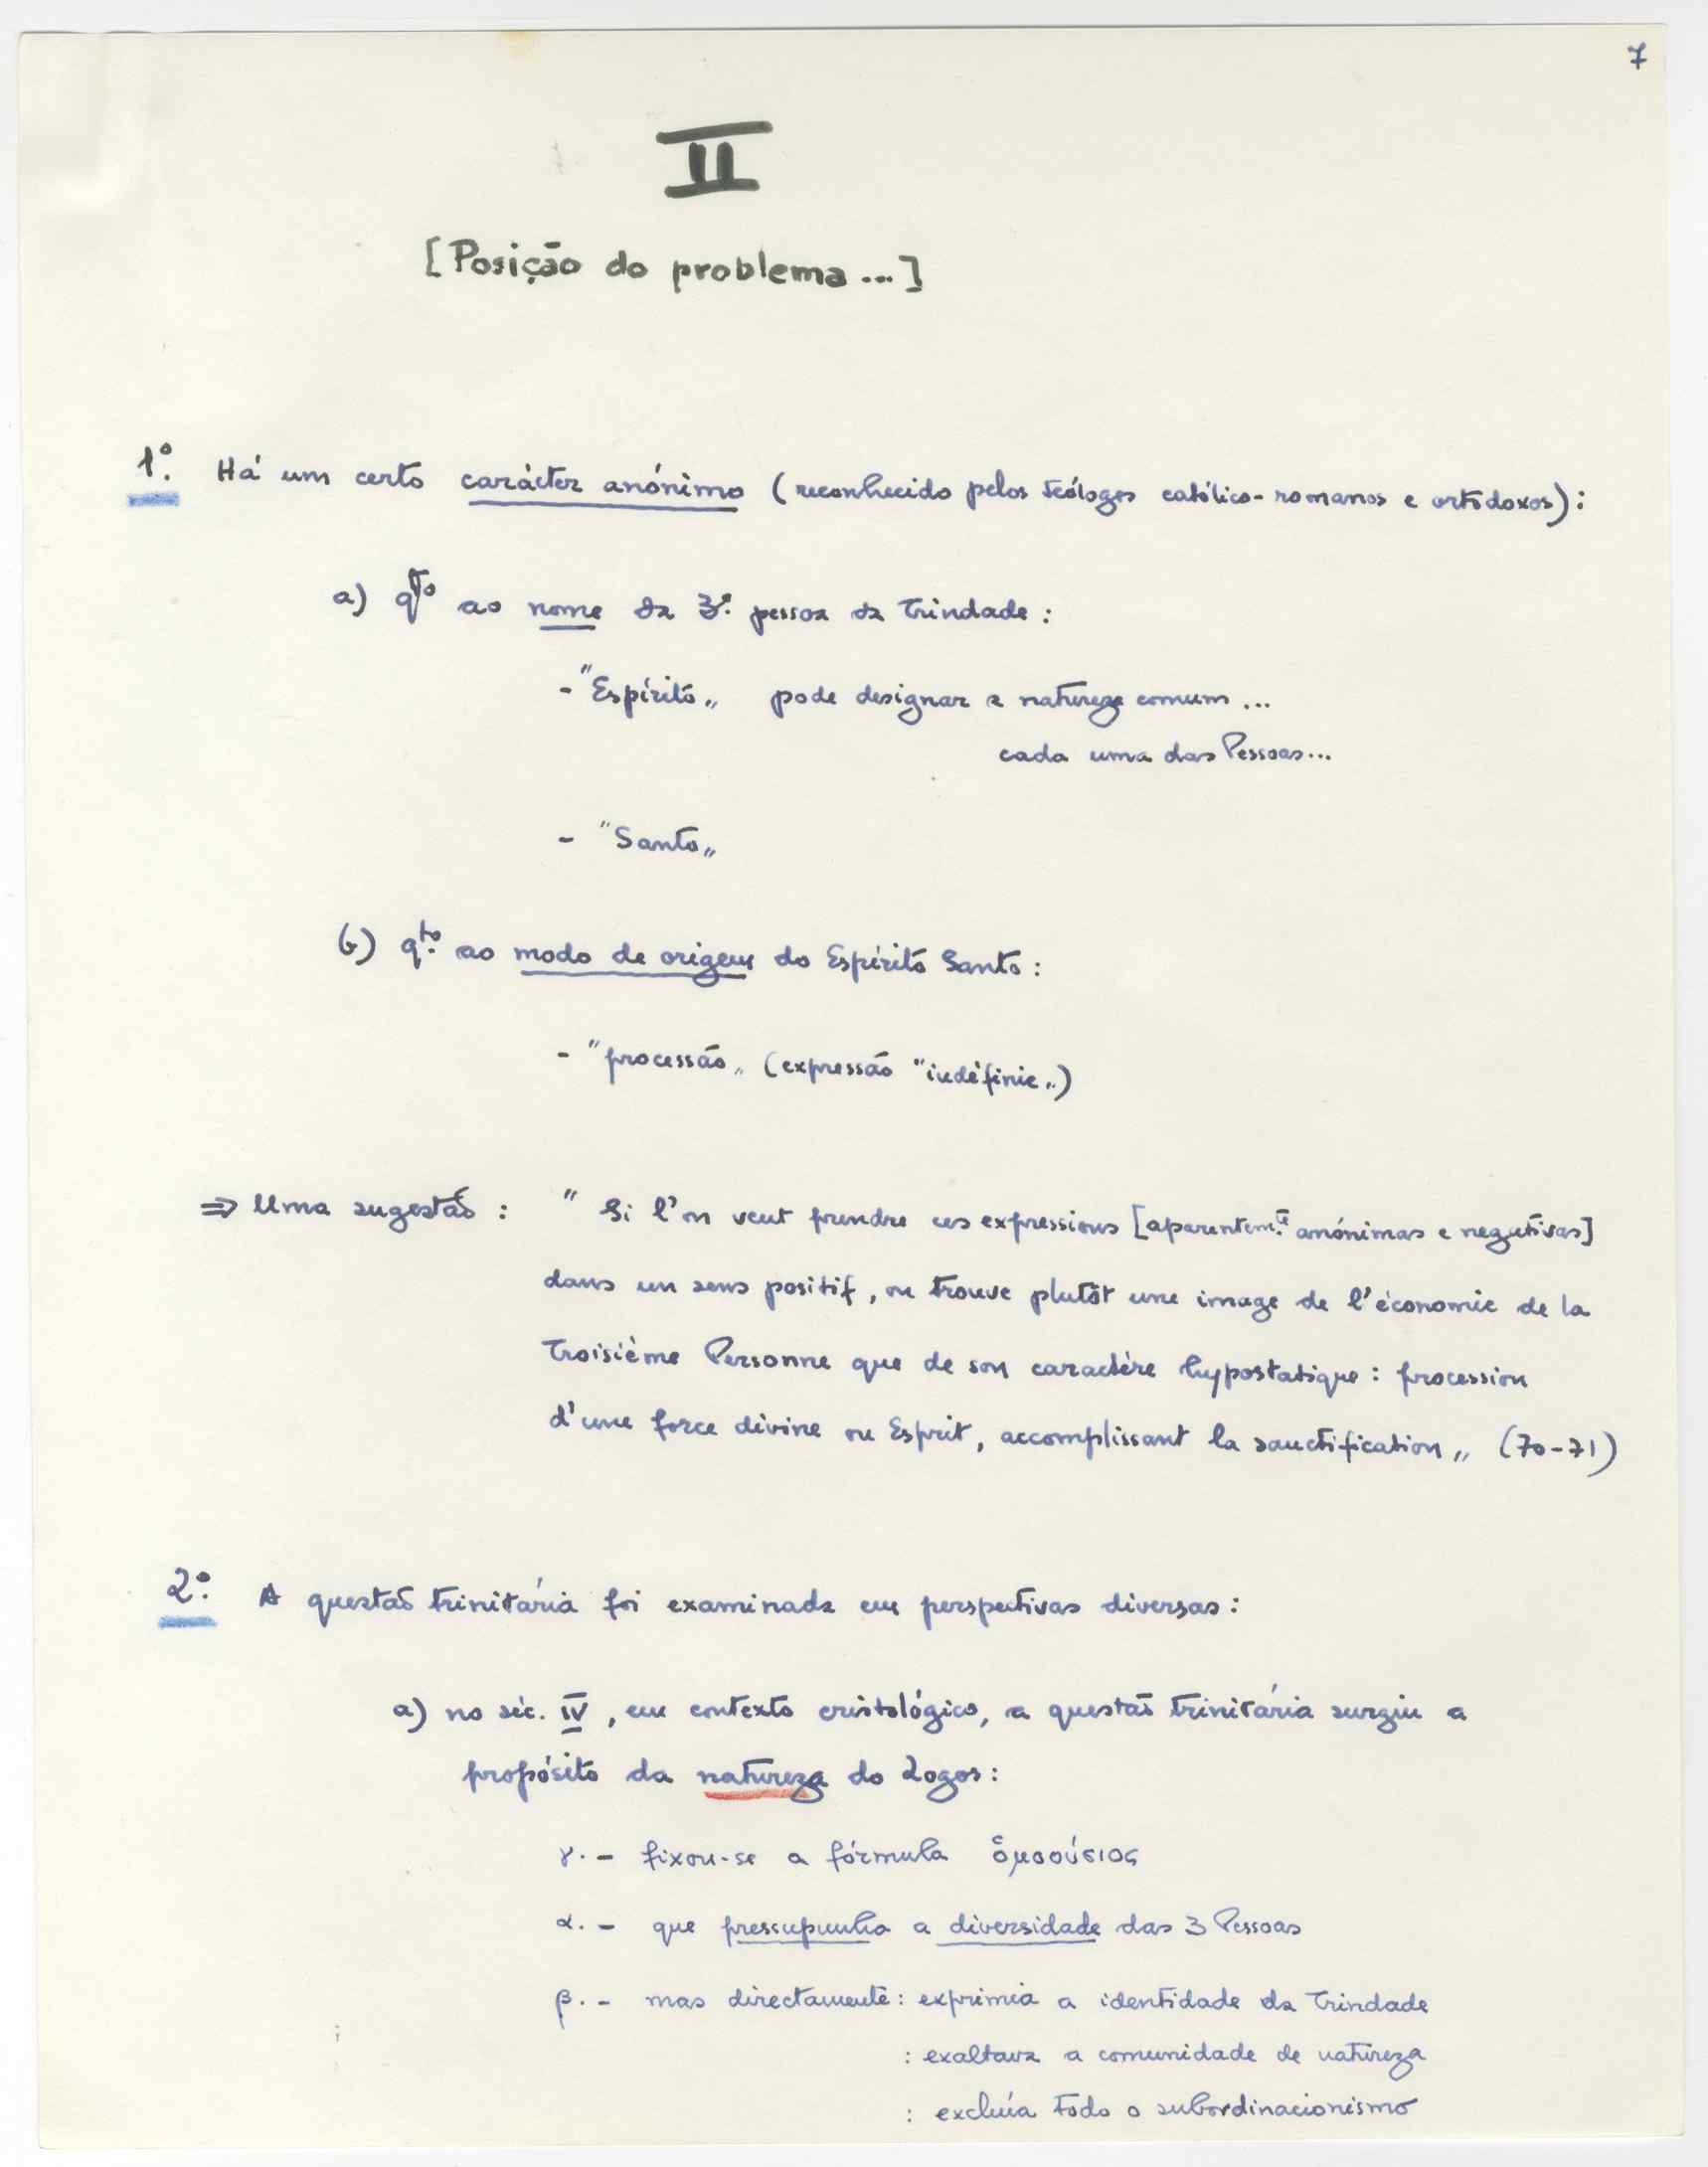 7
II
[Posição do problema...]
1º. Há um certo carácter anónimo (reconhecido pelos teólogos católico-romanos e ortodoxos):
a) qto ao nome da 3ª. pessoa da Trindade:
- "Espírito„ pode designar a natureza comum...
cada uma das Pessoas...
- "Santo„
b) qto. ao modo de origem do Espírito Santo:
- "processão„ (expressão "indéfinie„)
⇒ Uma sugestão : " Si l'on veut prendre ces expressions [aparentemte. anónimas e negativas]
dans un sens positif, on trouve plutôt une image de l'économie de la
Troisième Personne que de son caractère hypostatique : procession
d'une force divine ou Esprit, accomplissant la sanctification„ (70-71)
2º. A questão trinitária foi examinada em perspectivas diversas:
a) no séc. IV, em contexto cristológico, a questão trinitária surgiu a
propósito da natureza do Logos:
γ. - fixou-se a fórmula ὁμοούσιος
α. - que pressupunha a diversidade das 3 Pessoas
β. - mas directamente: exprimia a identidade da Trindade
: exaltava a comunidade de natureza
: excluía todo o subordinacionismo